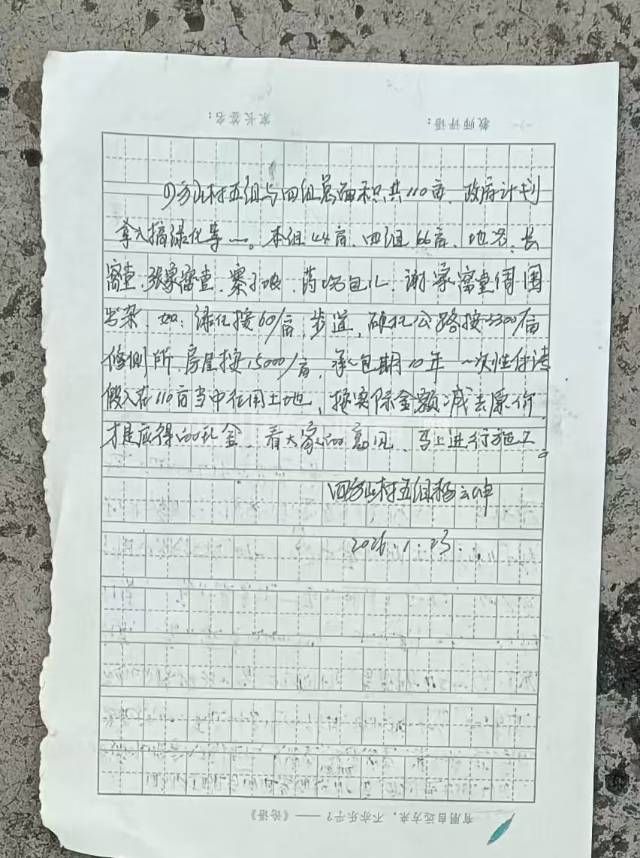 教师评语：
家长签名：
四方山村五组与四组总面积共110亩、政府计划
拿入搞绿化等一。本组44亩、四组66亩、地名、长
窖堂、张家窖堂、寨子坡、药场包儿、谢家窖堂周围
岩杂、如、绿化按60/亩，步道，硬化公路按3300/亩
修侧所、房屋按15000/亩，承包期10年 一次性付清
假入在110亩当中征用土地，按实际金额减去原价，
才是应得的礼金、看大家的意见、马上进行施工。
四方山村五组
2026.1.23.
有朋自远方来，不亦乐乎？——《论语》